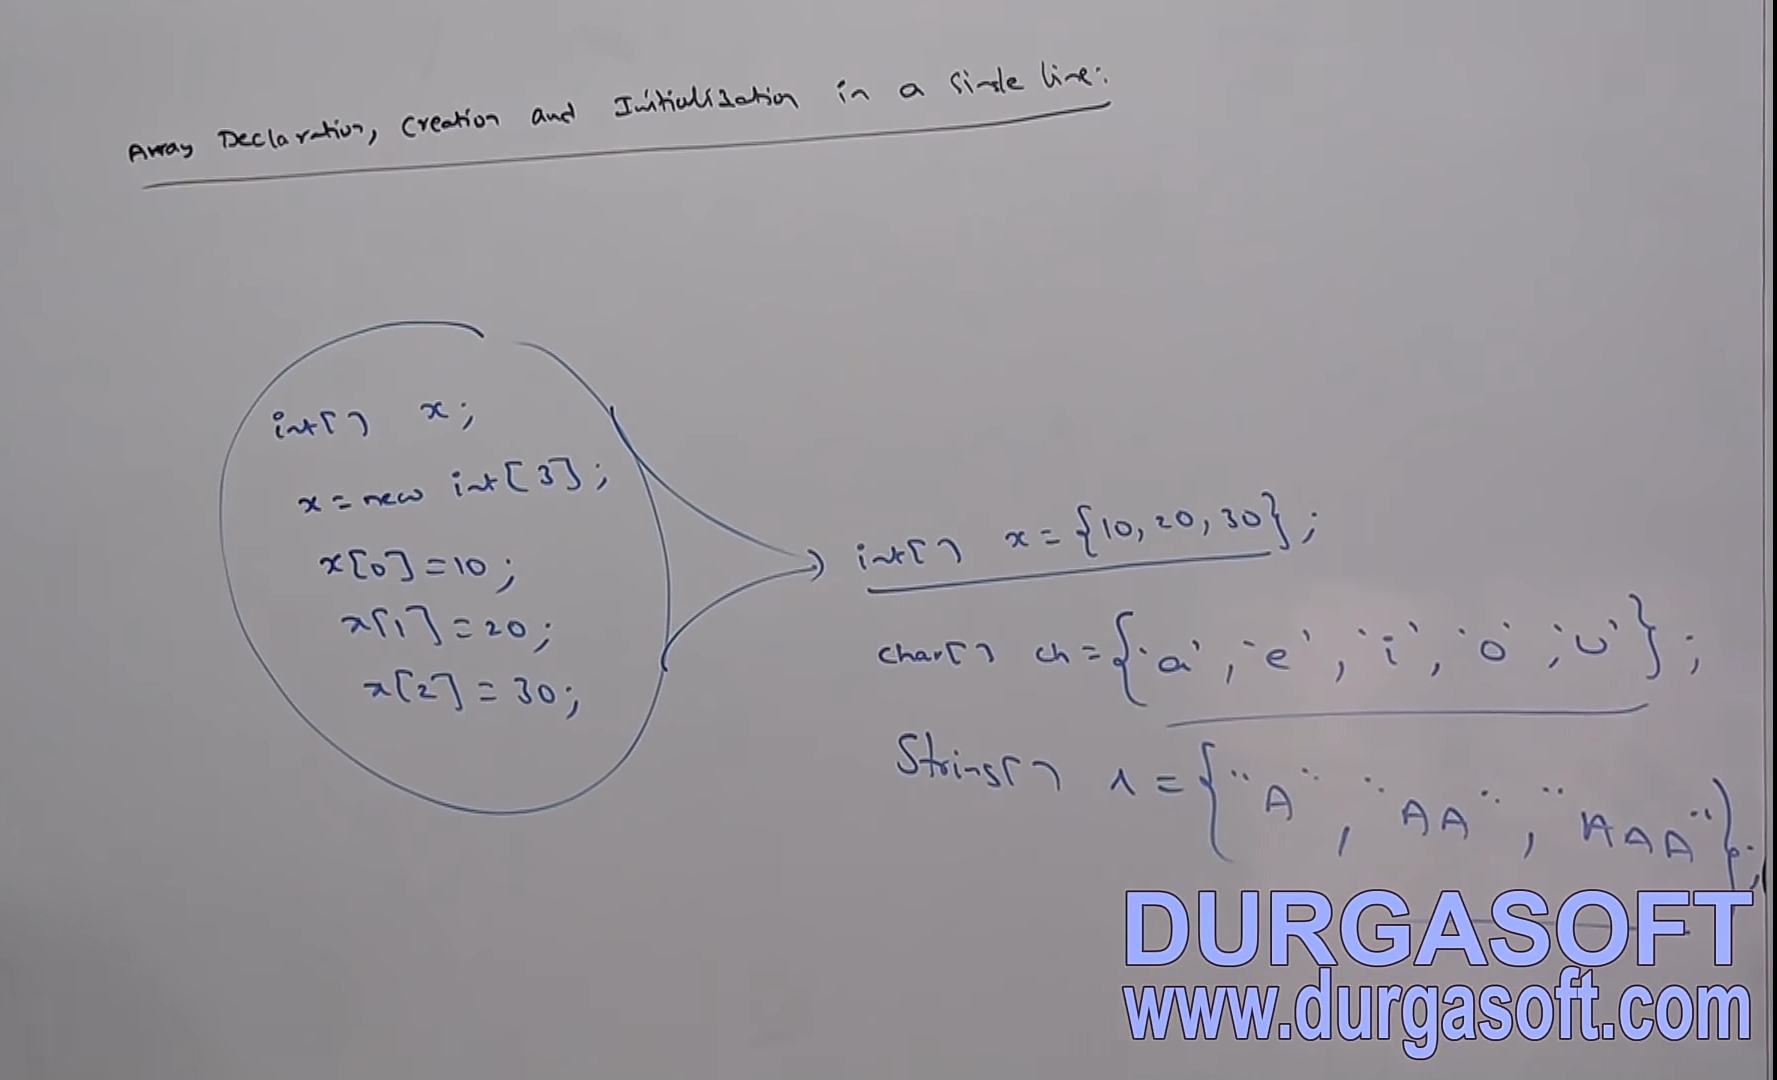 Array Declaration, Creation and Initialization in a Single line:
int[] x;
x = new int[3];
x[0] = 10;
x[1] = 20;
x[2] = 30;
int[] x = {10, 20, 30};
char[] ch = {'a', 'e', 'i', 'o', 'u'};
String[] s = {"A", "AA", "AAA"};
DURGASOFT
www.durgasoft.com